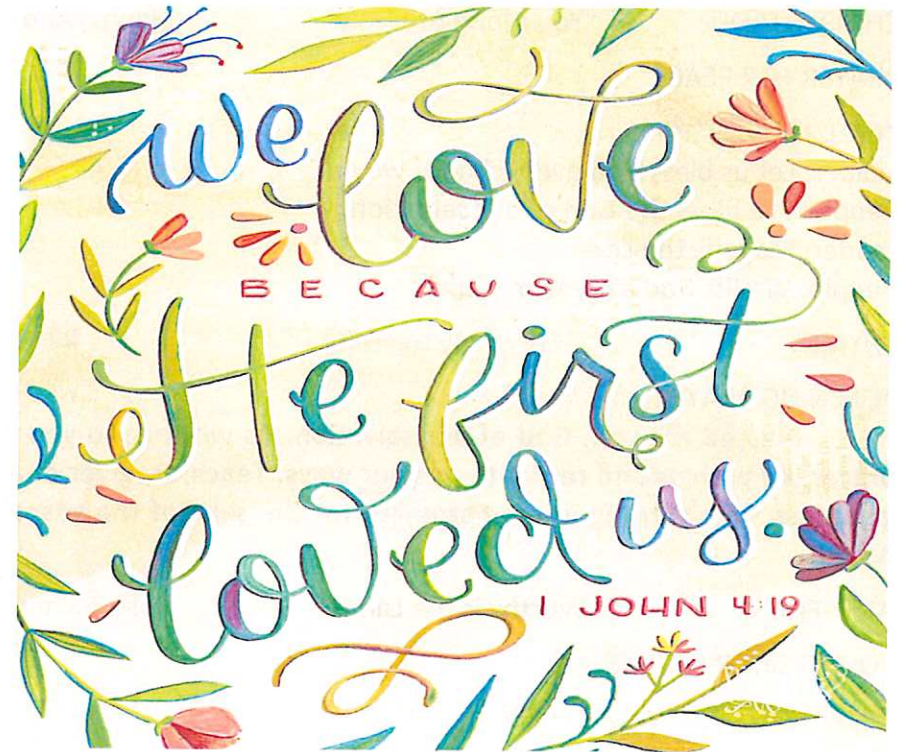 we love
BECAUSE
He first
loved us.
1 JOHN 4:19